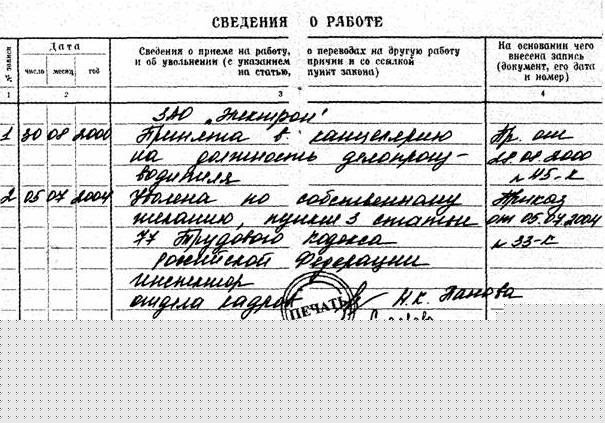 СВЕДЕНИЯ О РАБОТЕ
№ записи
Дата
число месяц год
Сведения о приеме на работу, о переводах на другую работу
и об увольнении (с указанием причин и со ссылкой
на статью, пункт закона)
На основании чего
внесена запись
(документ, его дата
и номер)
1 2 3 4
ЗАО "Электрон"
1 30 08 2000 Принята в канцелярию Пр. от
на должность делопроиз- 28.08.2000
водителя №45-к
2 05 07 2004 Уволена по собственному Приказ
желанию, пункт 3 статьи от 05.07.2004
77 Трудового кодекса №33-к
Российской Федерации
инспектор
отдела кадров Н.К. Панова
ПЕЧАТЬ